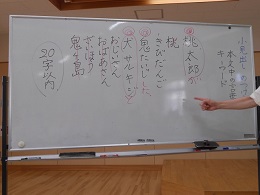 小見出し
本文中の言葉
キーワード
桃太郎が
桃
きびだんご
鬼たいじ
犬 サル キジ
おじいさん
おばあさん
ざいほう
鬼ヶ島
20字以内